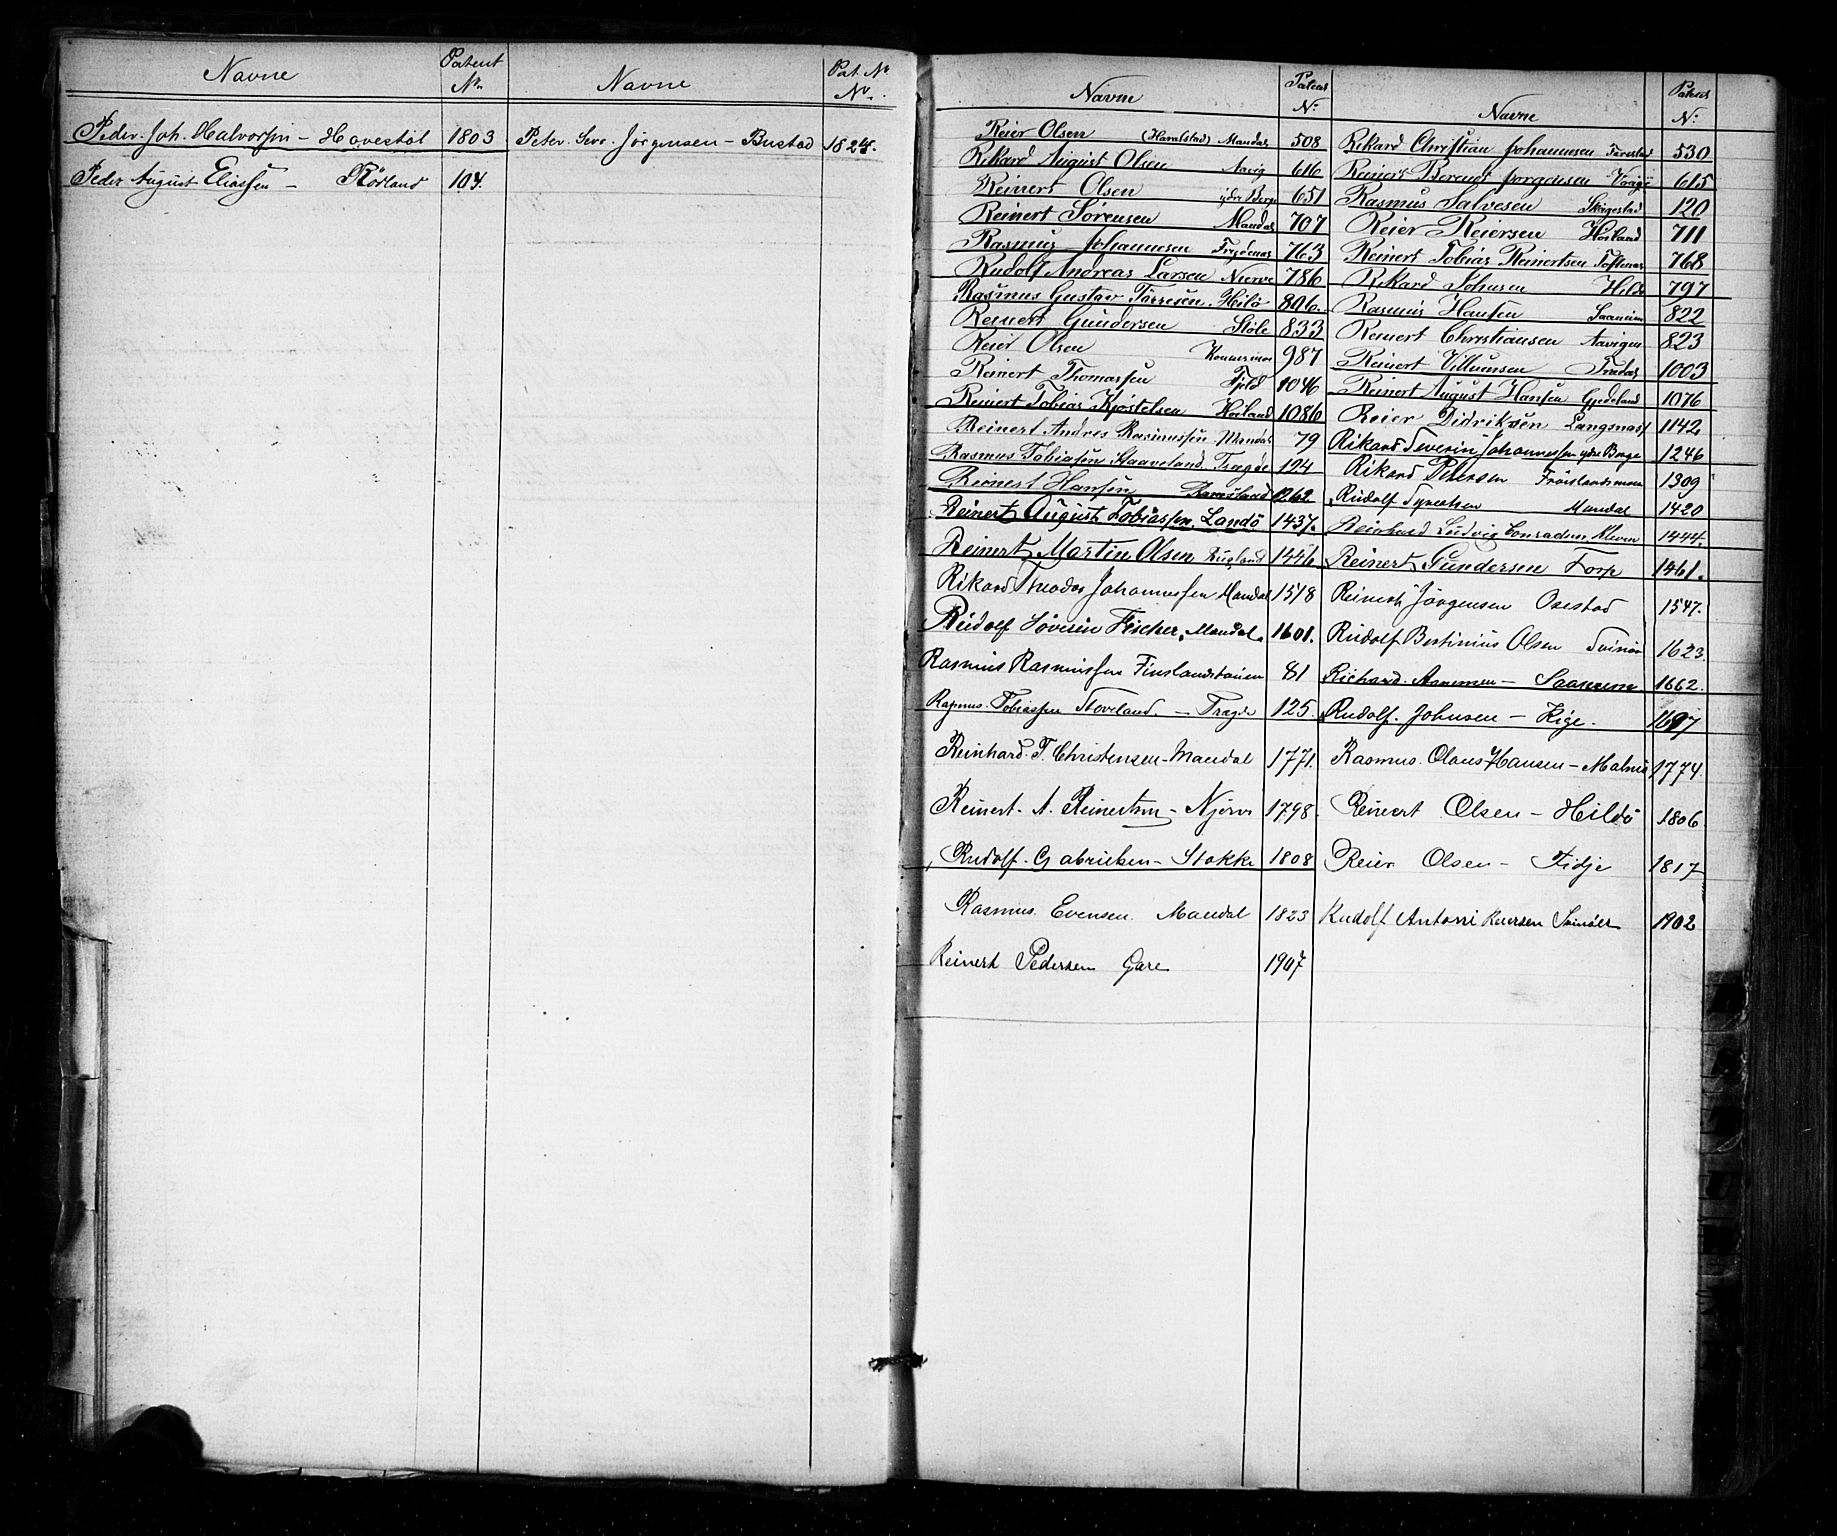 Navne Patent No. Navne Pat. No No.
Peder. Joh. Halvorsen – Hovestöl 1803 Peter. Sev. Jörgensen – Bustad 1824.
Peder August Eliassen – Rödland 104.
Navne Patent No: Navne Patent No:
Reier Olsen (Haralstad) Mandal 508 Rikard Christian Johannesen Farestad 530
Rikard August Olsen Aavig 616 Reinert Berendt Jörgensen 615
Reinert Olsen ydre Berge 651 Rasmus Salvesen Skogestad 120
Reinert Sörensen Mandal 707 Reier Reiersen Höiland 711
Rasmus Johannesen 763 Reinert Tobias Reinertsen Toftenæs 768
Rudolf Andreas Larsen Njerve 786 Rikard Johnsen Hille 797
Rasmus Gustav Törresen. Hilö 806. Rasmus Hansen Saanum 822
Reinert Gundersen Støle 833 Reinert Christiansen Aavigen 823
Reier Olsen 987 Reinert Villumsen 1003
Reinert Thomassen Fjeld 1046 Reinert August Hansen Gjedeland 1076
Reinert Tobias Kjöstelsen Höiland 1086 Reier Didriksen Langenæs 1142
Reinert Andres Rasmussen Mandal 79 Rikard Severin Johannessen ydre Berge 1246
Rasmus Tobiasen Skaaveland. Trægde 124 Rikard Petersen 1309
Reinert Hansen 1262 Rudolf Mandal 1420
Reinert August Tobiassen, Landö 1437. Reinhard Ludvig Conradsen Kleven 1444.
Reinert Martin Olsen 1446 Reinert Gundersen Torp 1461.
Rikard Theodor Johannessen Mandal 1518 Reinert Jörgensen Osestad 1547.
Rudolf Söverin Fischer, Mandal. 1601. Rudolf Bertinius Olsen Svinör 1623.
Rasmus Rasmussen 81 Richard. Aanensen – Saanum 1662.
Rasmus. Tobiassen Stoveland. – Tregde 125. Rudolf. Johnsen – Rige. 1697
Reinhard. T. Christensen – Mandal 1771. Rasmus. Olaus Hansen – Malnæs 1774
Reinert. A. Reinertsen – Njerve 1798. Reinert Olsen – Hildö 1806
Rudolf. Gabrielsen – Stokke 1808 Reier Olsen – Fidje 1817
Rasmus. Evensen. Mandal 1823 Rudolf Antoni Reiersen 1902
Reinert Pedersen Gare 1907